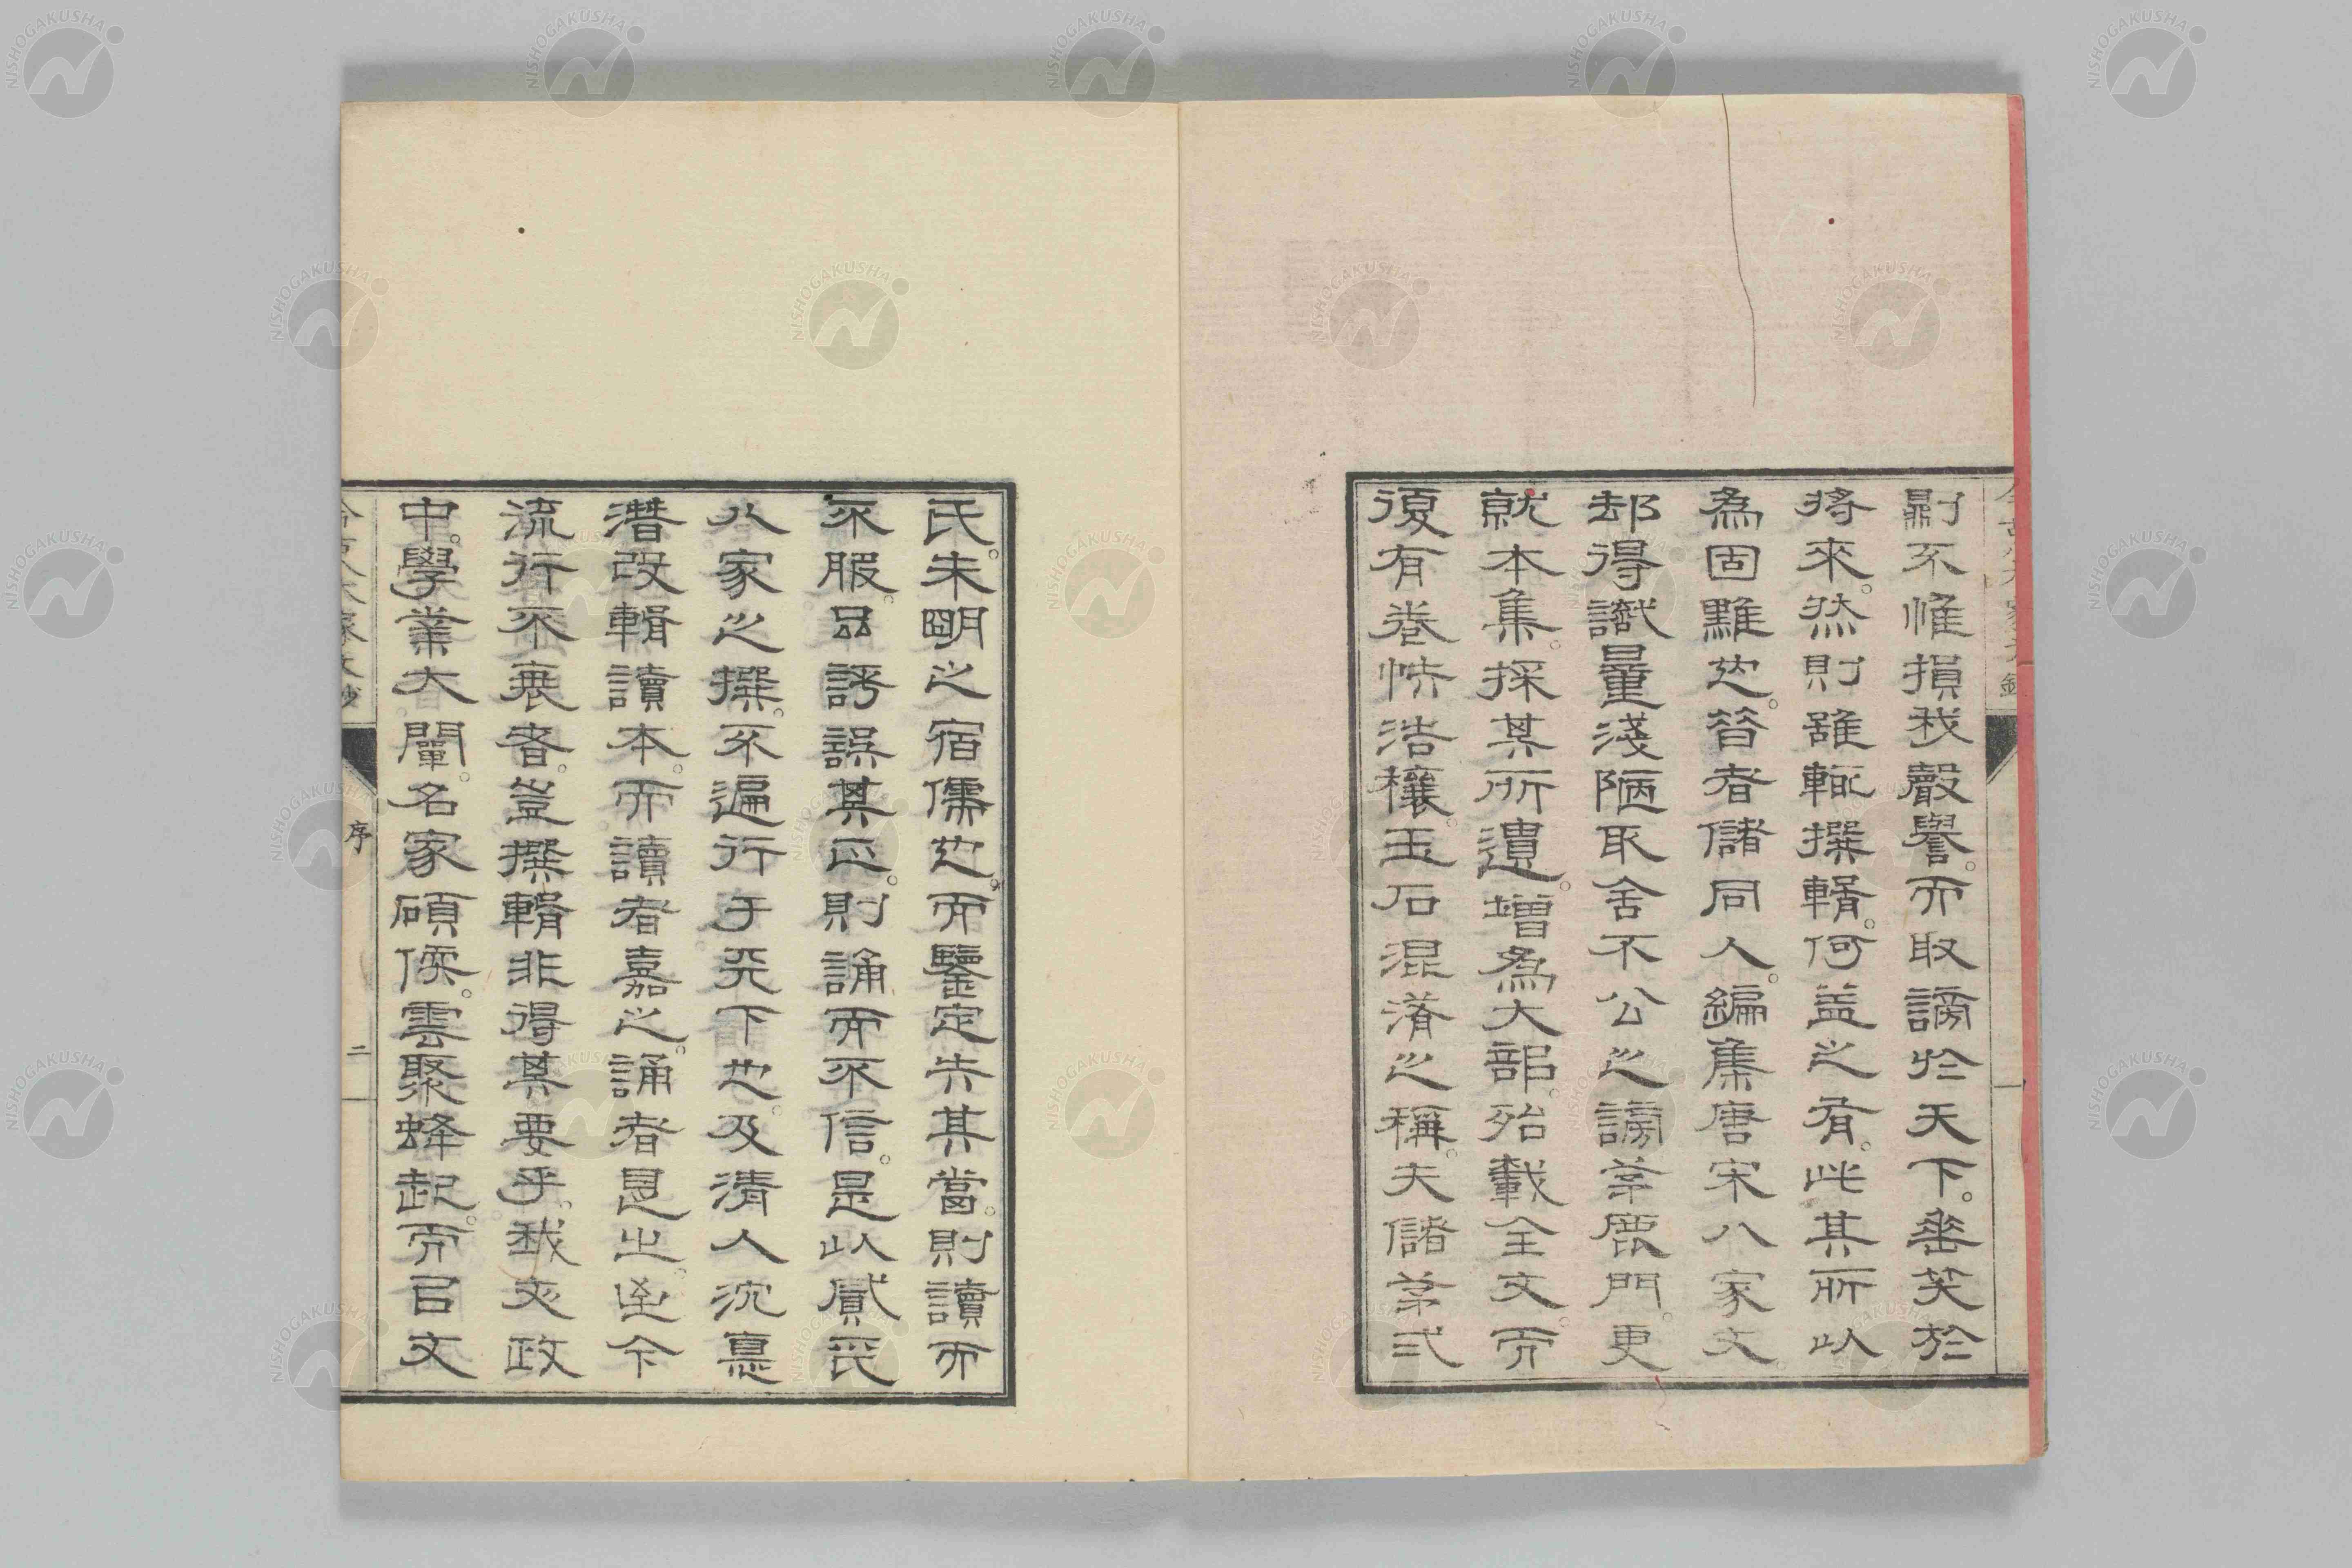 剛不惟損我聲譽。而取謗於天下。垂笑於
將來。然則雖輒撰輯。何益之有。此其所以
為固難也。昔者儲同人。編集唐宋八家文
却得識量淺陋取舍不公之謗茅鹿門。更
就本集。採其所遺。增為大部。殆載全文。而
復有卷帙浩穰。玉石混淆之稱。夫儲茅弍
氏。朱明之宿儒也。而鑒定失其當。則讀而
不服。品評誤其正。則誦而不信。是以貳氏
八家之撰。不遍行于天下也。及清人沈悳
潛改輯讀本。而讀者嘉之。誦者思之。迄今
流行不衰者。豈撰輯非得其要乎。我文政
中。學業大闡。名家碩儒。雲聚蜂起。而以文
序
二
NISHOGAKUSHA